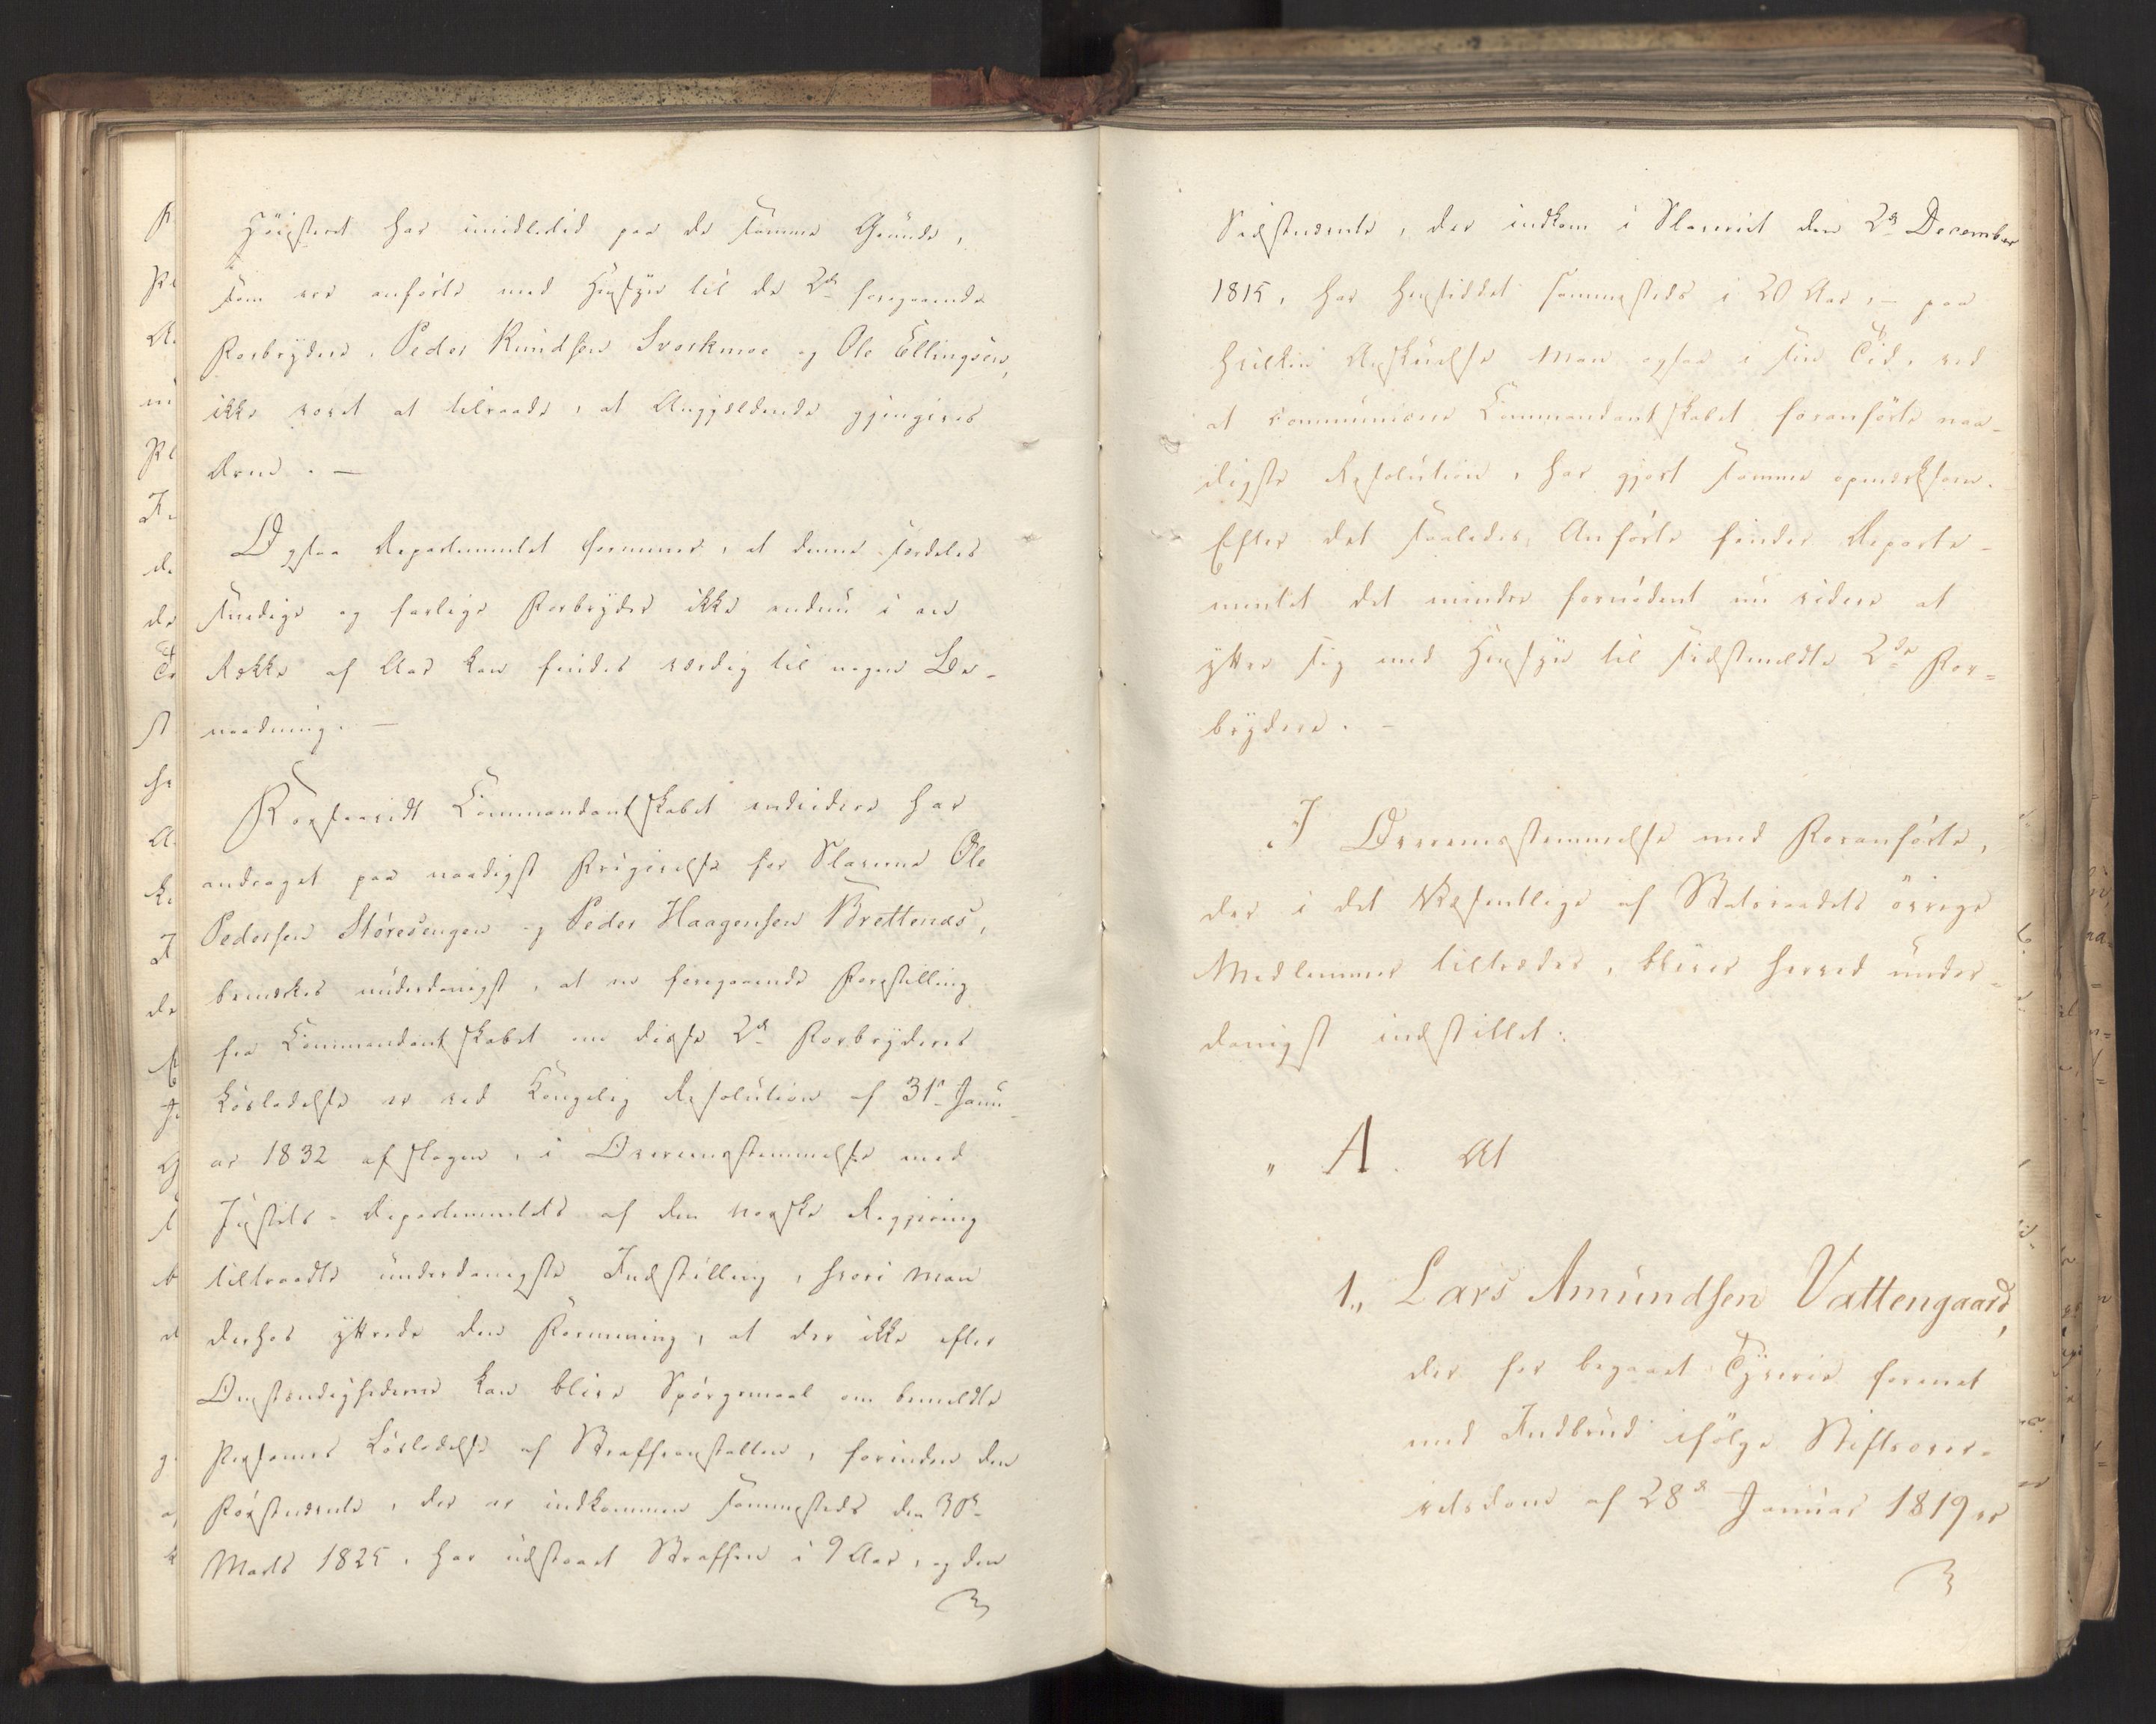 Høiesteret har imidlertid paa de samme Grunde,
som ere anførte med Hensyn til de 2de foregaaende
Forbrydere, Peder Knudsen Svorkmoe og Ole Ellingsen,
ikke voret at tilraade, at Angjældende gjengives
Aren. —
Ogsaa Departementet formener, at denne særdeles
snedige og farlige Forbryder ikke endnu i en
Række af Aar kan findes værdig til nogen Be-
naadning. —
Forsaavidt Commandantskabet endvidere har
andraget paa naadigst Frigivelse for Slaverne Ole
Pedersen Störesengen og Peder Haagensen Brettenæs,
bemærkes underdanigst, at en foregaaende Forestilling
fra Commandantskabet om disse 2de Forbryderes
Løsladelse er ved Kongelig Resolution af 31te Janu-
ar 1832 afslagen, i Overeensstemmelse med
Justits-Departementets af den norske Regjering
tiltraadte underdanigste Indstilling, hvori man
derhos yttrede den Formening, at der ikke efter
Omstændighederne kan blive Spørgsmaal om bemeldte
Personers Løsladelse af Straffeanstalten, forinden den
Førstnævnte, der er indkommen sammesteds den 30te
Marts 1825, har udstaaet Straffen i 9 Aar, og den
Sidstnævnte, der indkom i Slaveriet den 2de December
1815, har hensiddet sammesteds i 20 Aar, – paa
hvilken Anskuelse man ogsaa i sin Tid, ved
at communicere Commandantskabet foranførte naa-
digste Resolution, har gjort samme opmærksom.
Efter det saaledes Anførte finder Departe-
mentet det mindre fornødent nu videre at
yttre sig med Hensyn til sidstmeldte 2de For-
brydere. –
I Overeensstemmelse med Foranførte,
der i det Væsentlige af Statsraadets øvrige
Medlemmer tiltrædes, bliver herved under-
danigst indstillet:
„ A. At
1., Lars Amundsen Vattengaard,
der for begaaet Tyverie forenet
med Indbrud ifølge Stiftsover-
retsdom af 28de Januar 1819 er